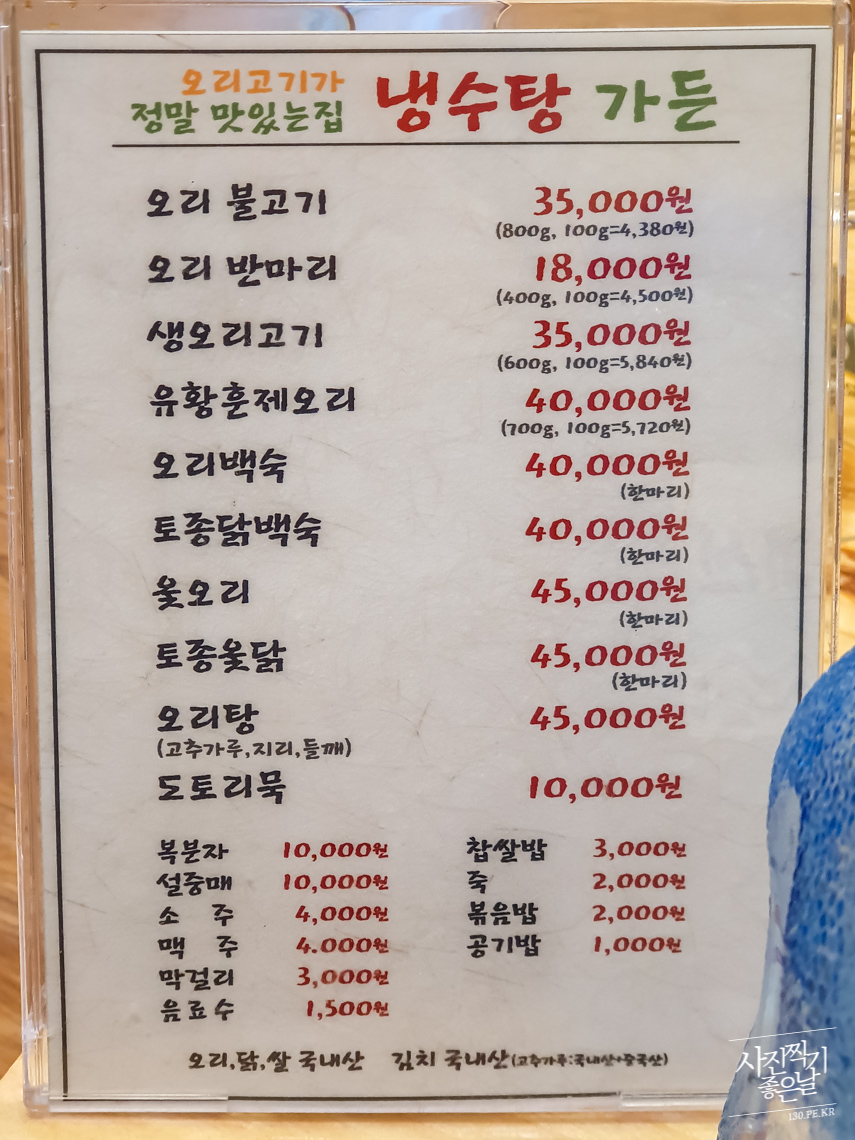 오리고기가
정말 맛있는집 냉수탕 가든
오리 불고기 35,000원
(800g, 100g=4,380원)
오리 반마리 18,000원
(400g, 100g=4,500원)
생오리고기 35,000원
(600g, 100g=5,840원)
유황훈제오리 40,000원
(700g, 100g=5,720원)
오리백숙 40,000원
(한마리)
토종닭백숙 40,000원
(한마리)
옻오리 45,000원
(한마리)
토종옻닭 45,000원
(한마리)
오리탕 45,000원
(고추가루,지리,들깨)
도토리묵 10,000원
복분자 10,000원 찹쌀밥 3,000원
설중매 10,000원 죽 2,000원
소 주 4,000원 볶음밥 2,000원
맥 주 4.000원 공기밥 1,000원
막걸리 3,000원
음료수 1,500원
오리,닭,쌀 국내산 김치 국내산(고추가루:국내산+중국산)
사진찍기
좋은날
130.PE.KR